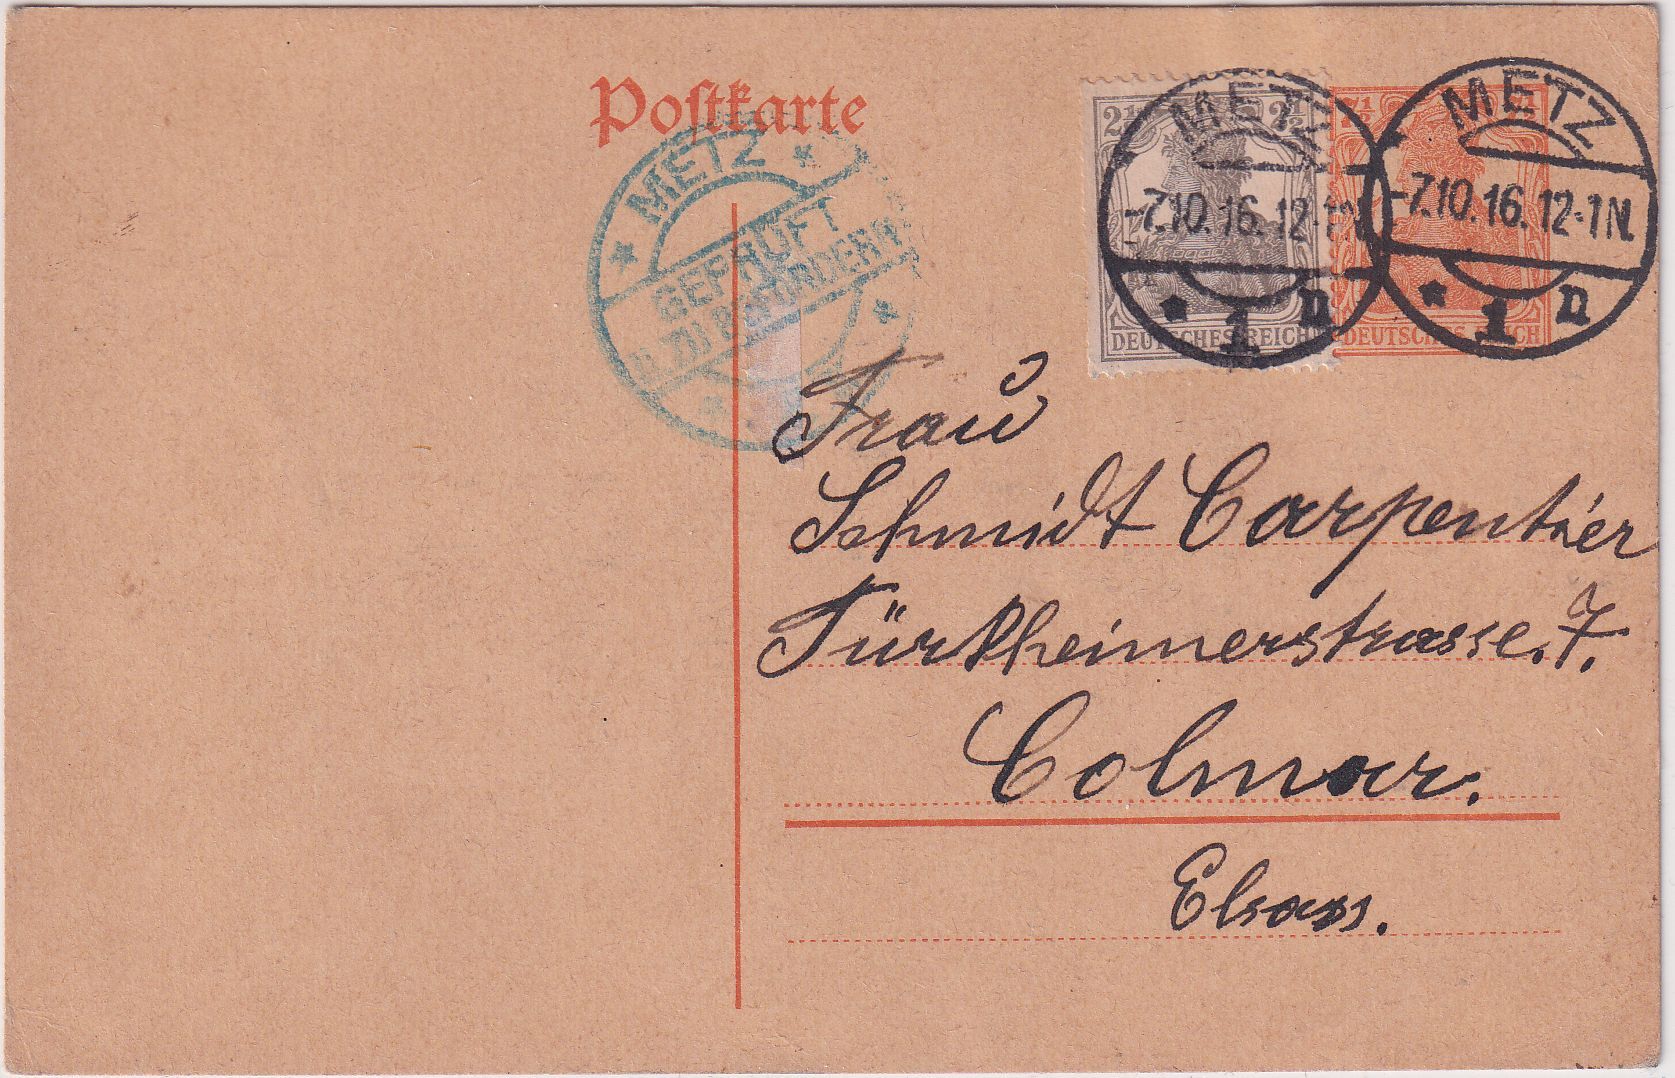 Postkarte
METZ
GEPRÜFT
U. ZU BEFÖRDERN
2½ 2½
DEUTSCHES REICH
METZ
-7.10.16. 12-1N.
* 1 n
7½ 7½
DEUTSCHES REICH
METZ
-7.10.16. 12-1N.
* 1 n
Frau
Schmidt Carpentier
Türkheimerstrasse. 7.
Colmar.
Elsass.